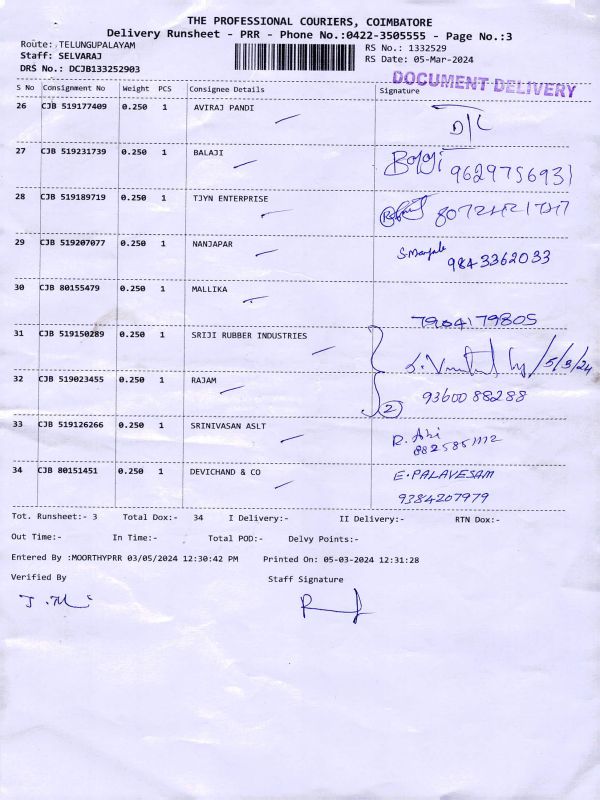 THE PROFESSIONAL COURIERS, COIMBATORE
Delivery Runsheet - PRR - Phone No.:0422-3505555 - Page No.:3
Route: TELUNGUPALAYAM
RS No.: 1332529
Staff: SELVARAJ
RS Date: 05-Mar-2024
DRS No.: DCJB133252903
DOCUMENT DELIVERY
S No Consignment No Weight PCS Consignee Details Signature
26 CJB 519177409 0.250 1 AVIRAJ PANDI
D/L
27 CJB 519231739 0.250 1 BALAJI
Balaji 9629756931
28 CJB 519189719 0.250 1 TJYN ENTERPRISE
29 CJB 519207077 0.250 1 NANJAPAR
9843362033
30 CJB 80155479 0.250 1 MALLIKA
7904179805
31 CJB 519150289 0.250 1 SRIJI RUBBER INDUSTRIES
5/3/24
32 CJB 519023455 0.250 1 RAJAM
2 9360088288
33 CJB 519126266 0.250 1 SRINIVASAN ASLT
R. Abi
34 CJB 80151451 0.250 1 DEVICHAND & CO
E. PALAVESAM
9384207979
Tot. Runsheet:- 3 Total Dox:- 34 I Delivery:- II Delivery:- RTN Dox:-
Out Time:- In Time:- Total POD:- Delvy Points:-
Entered By :MOORTHYPRR 03/05/2024 12:30:42 PM Printed On: 05-03-2024 12:31:28
Verified By Staff Signature